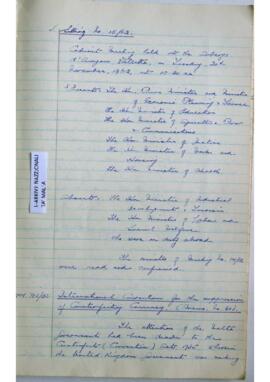 Sitting No. 15/62.
Cabinet Meeting held at the Auberge
d'Aragon, Valletta, on Tuesday, 20th
November, 1962, at 10.30 a.m.
Present: The Hon. Prime Minister and Minister
of Economic Planning & Finance
The Hon. Minister of Education
The Hon. Minister of Agriculture, Power
& Communications
The Hon. Minister of Justice
The Hon. Minister of Works and
Housing
The Hon. Minister of Health
Absent: The Hon. Minister of Industrial
Development & Tourism
The Hon. Minister of Labour and
Social Welfare
who were on duty abroad
The minutes of Meeting No. 14/62
were read and confirmed.
L-ARKIVJ NAZZJONALI
TA' MALTA
International Convention for the suppression
of Counterfeiting Currency (Memo. No.
The attention of the Malta
Government had been drawn to the
Counterfeit (Convention) Act, 1935 whereby
the United Kingdom Government was making